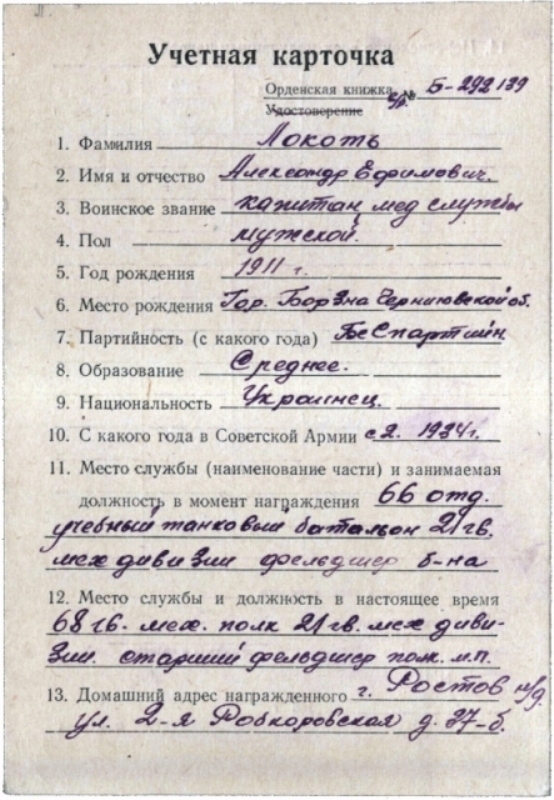 Учетная карточка
Орденская книжка № Б-292139
Удостоверение
1. Фамилия Локоть
2. Имя и отчество Александр Ефимович.
3. Воинское звание капитан мед службы
4. Пол мужской.
5. Год рождения 1911 г.
6. Место рождения Гор. Борзна Черниговской об.
7. Партийность (с какого года) Беспартийн.
8. Образование Среднее.
9. Национальность Украинец.
10. С какого года в Советской Армии с 1934 г.
11. Место службы (наименование части) и занимаемая
должность в момент награждения 66 отд.
учебный танковый батальон 21 гв.
мех дивизии фельдшер б-на
12. Место службы и должность в настоящее время
68 гв. мех. полк 21 гв. мех диви-
зии. старший фельдшер полк. м.п.
13. Домашний адрес награжденного г. Ростов н/д.
ул. 2-я Рабкоровская д. 37-б.